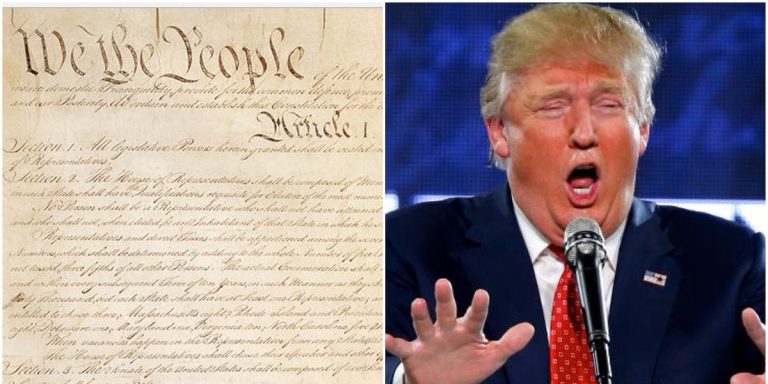 We the People of the Uni
insure domestic Tranquility, provide for the common defence, prom
and our Posterity, do ordain and establish this Constitution for the
Article. I.
Section. 1. All legislative Powers herein granted shall be vested in
of Representatives.
Section. 2. The House of Representatives shall be composed of Mem
in each State shall have Qualifications requisite for Electors of the most numer
No Person shall be a Representative who shall not have attained
and who shall not, when elected, be an Inhabitant of that State in which he
Representatives and direct Taxes shall be apportioned among the seve
Numbers, which shall be determined by adding to the whole Number of free
not taxed, three fifths of all other Persons. The actual Enumeration shall
every subsequent Term of ten Years, in such Manner as they sha
thirty Thousand, but each State shall have at Least one Representative;
entitled to chuse three, Massachusetts eight, Rhode Island and Providen
eight, Delaware one, Maryland six, Virginia ten, North Carolina five,
When vacancies happen in the Representation from any
The House of Representatives shall chuse their Speaker and other
Section. 3. The Senate of the United States shall be composed of two